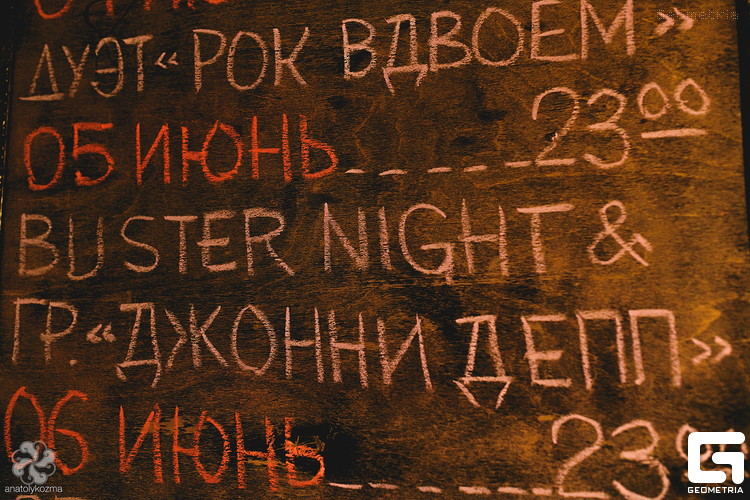 ДУЭТ «РОК ВДВОЕМ»
05 ИЮНЬ 23⁰⁰
BUSTER NIGHT &
ГР. «ДЖОННИ ДЕПП»
06 ИЮНЬ 23⁰⁰
anatolykozma
GEOMETRIA